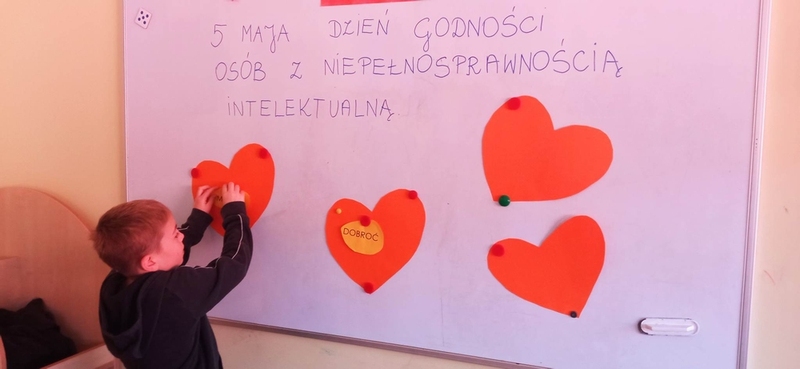 5 MAJA DZIEŃ GODNOŚCI
OSÓB Z NIEPEŁNOSPRAWNOŚCIĄ
INTELEKTUALNĄ
DOBROĆ